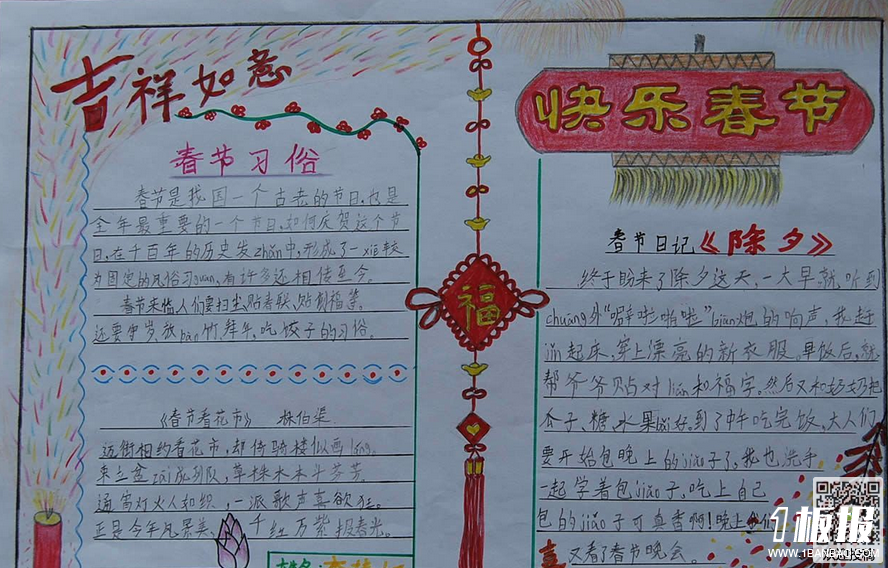 吉祥如意
春节习俗
春节是我国一个古老的节日,也是
全年最重要的一个节日,如何庆贺这个节
日,在千百年的历史发zhǎn中,形成了一xiē较
为固定的风俗习guàn,有许多还相传至今。
春节来临,人们要扫尘,贴春联,贴剪福等。
还要守岁放bào竹,拜年,吃饺子的习俗。
《春节看花市》 林伯渠
迈街相约看花市,却倚骑楼似画
束立盆zāi成列队,草株木本斗芬芳。
通宵灯火人如织,一派歌声喜欲狂。
正是今年风景美,千红万紫报春光。
福
快乐春节
春节日记《除夕》
终于盼来了除夕这天,一大早就听到
chuāng外“噼啦啪啦”biān炮的响声,我赶
jǐn起床,穿上漂亮的新衣服。早饭后,就
帮爷爷贴对lián和福字。然后又和奶奶把
瓜子、糖、水果bǎi好。到了中午吃完饭,大人们
要开始包晚上的jiǎo子了,我也洗手
一起学着包jiǎo子,吃上自己
包的jiǎo子可真香啊!晚上我们
又看了春节晚会。
喜
1板报
WWW.1BANBAO.COM